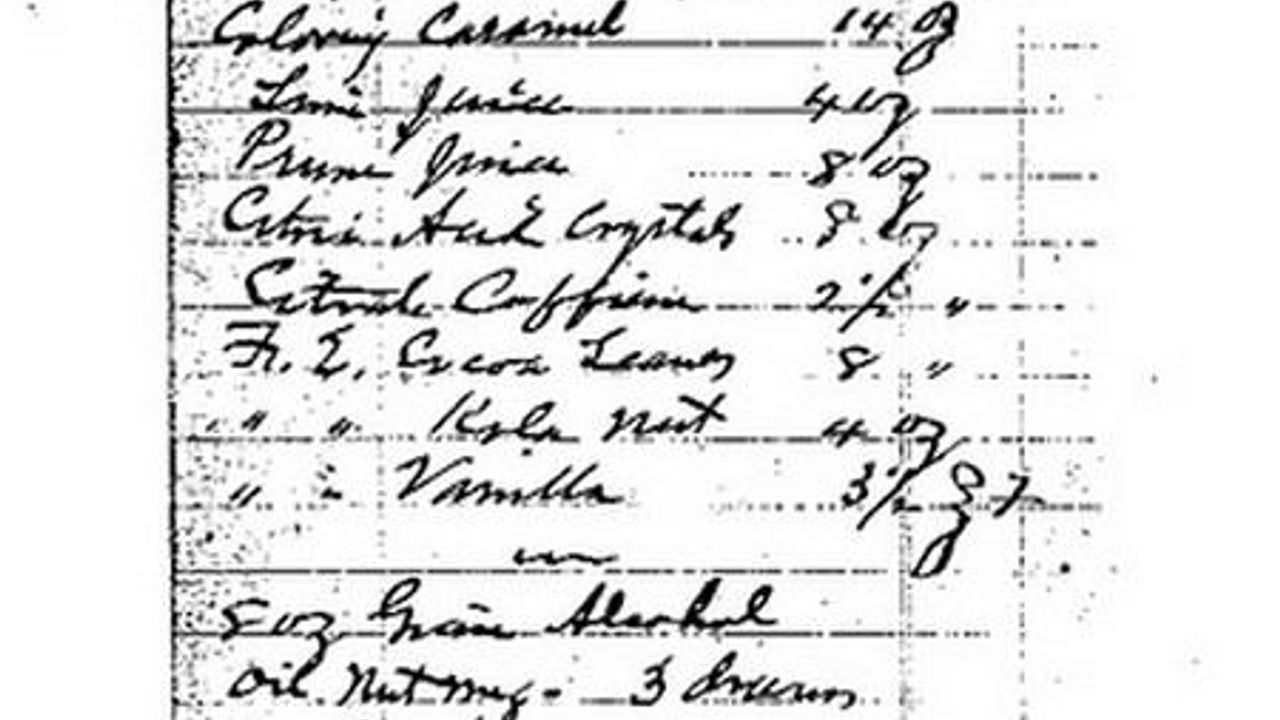 Coloring Caramel 14 oz
Lime Juice 4 oz
Prune Juice 8 oz
Citric Acid Crystals 8 oz
Citrate Caffeine 2 1/2 "
Fl. E. Cocoa Leaves 8 "
" " Kola Nut 4 oz
" " Vanilla 3 1/2
in
8 oz Grain Alcohol
Oil Nutmeg - 3 drams